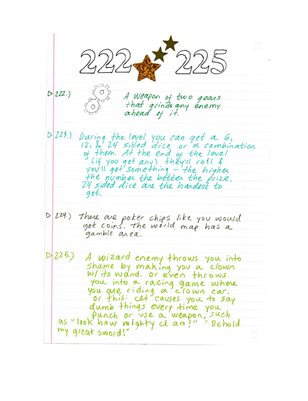 222 225
222.) A weapon of two gears
that grinds any enemy
ahead of it.
223.) During the level you can get a 6,
12, & 24 sided dice or a combination
of them. At the end of the level
(if you get any) they'll roll &
you'll get something - the higher
the number the better the prize.
24 sided dice are the hardest to
get.
224.) There are poker chips like you would
get coins. The world map has a
gamble area.
225.) A wizard enemy throws you into
shame by making you a clown
w/ its wand. Or even throws
you into a racing game where
you are riding a clown car.
Or this: it causes you to say
dumb things every time you
punch or use a weapon, such
as "look how mighty I am!" "Behold
my great sword!"